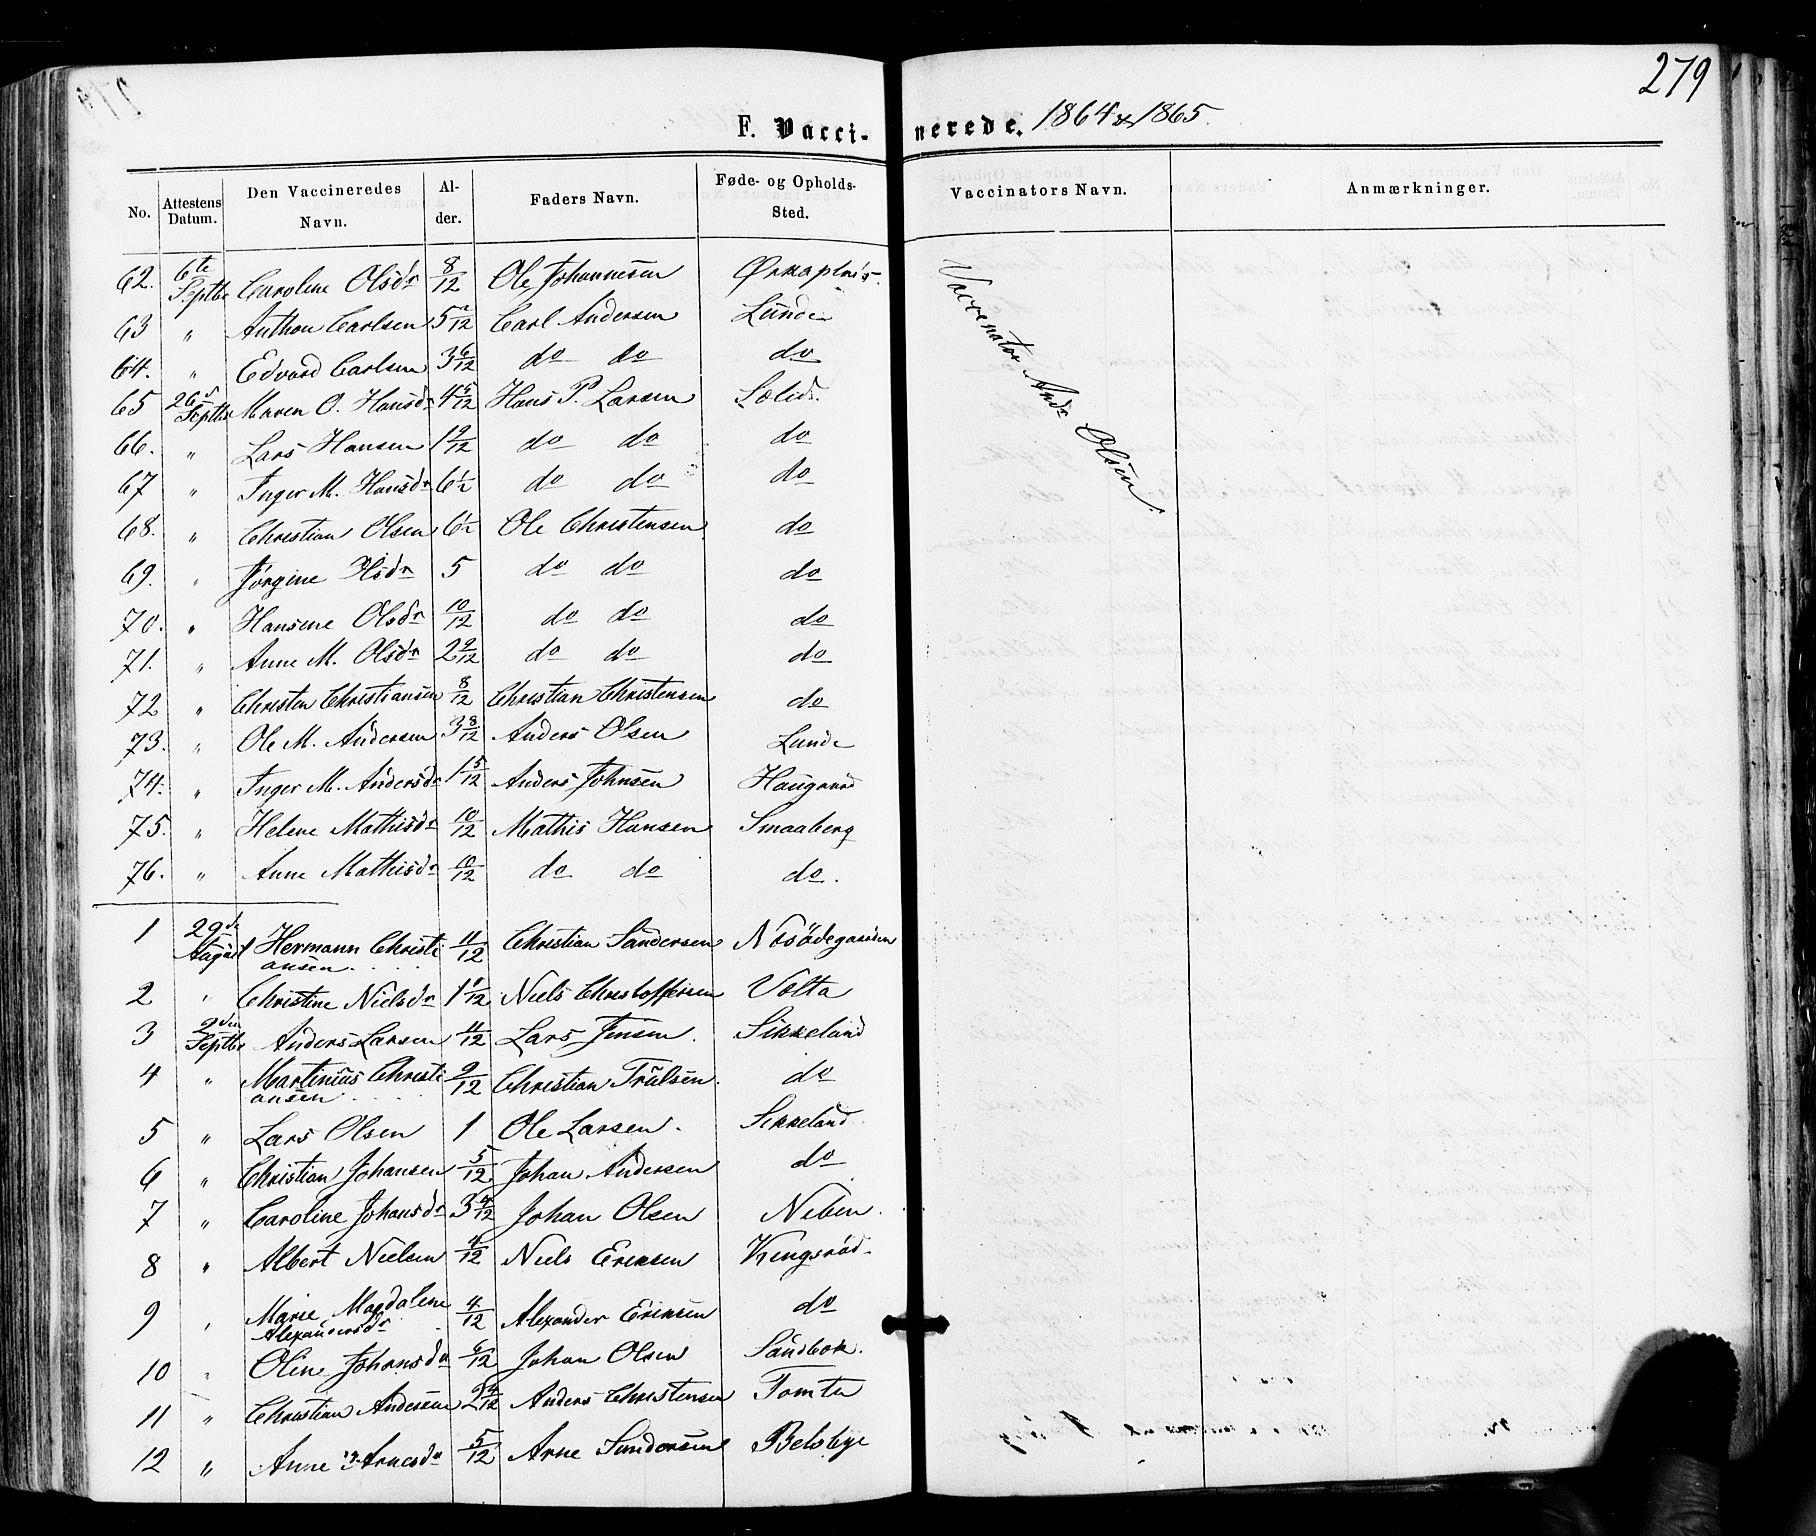 279
F. Vaccinerede. 1864 & 1865.
No. Attestens Datum. Den Vaccineredes Navn. Alder. Faders Navn. Føde- og Opholds-Sted. Vaccinators Navn. Anmærkninger.
62. 6te Septbr Caroline Olsdr 8/12 Ole Johannesen
63 " Anthon Carlsen 5 2/12 Carl Andersen Lunde
64. " Edvard Carlsen 3 6/12 do do do
65 26d Septbr Maren O. Hansdr 4 5/12 Hans P. Larsen
66. " Lars Hansen 1 9/12 do do do
67 " Inger M. Hansdr 6 1/2 do do do
68. " Christian Olsen 6 1/2 Ole Christensen do
69. " Jörgine Olsdr 5 do do do
70. " Hansine Olsdr 10/12 do do do
71. " Anne M. Olsdr 2 9/12 do do do
72 " Christen Christiansen 8/12 Christian Christensen do
73. " Ole M. Andersen 3 8/12 Anders Olsen Lunde
74. " Inger M. Andersdr 1 5/12 Anders Johnsen Haugaard
75. " Helene Mathisdr 10/12 Mathis Hansen Smaaberg
76. " Anne Mathisdr 10/12 do do do.
1 29de August Hermann Christiansen 11/12 Christian Sandersen Nosödegaarden
2 " Christine Nielsdr 1 1/12 Niels Christoffersen Volta
3 2den Septbr Anders Larsen 11/12 Lars Jensen. Sikkeland
4 " Martinius Christiansen 9/12 Christian Trulsen. do
5 " Lars Olsen 1 Ole Larsen. Sikkeland
6 " Christian Johansen 5/12 Johan Andersen do
7 " Caroline Johansdr 3 4/12 Johan Olsen Neben.
8 " Albert Nielsen 4/12 Niels Eriksen Kengsröd
9 " Marie Magdalene Alexandersdr 4/12 Alexander Eriksen do
10 " Oline Johansdr 6/12 Johan Olsen Sandbæk.
11 " Christian Andersen 2 4/12 Anders Christensen Tomter
12 " Anne M. Arnesdr 5/12 Arne Sandersen Belsbye
Vaccinator Andr Olsen.